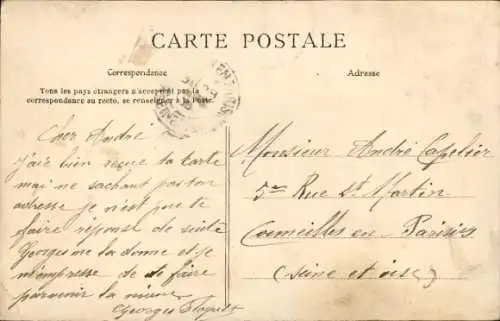 CARTE POSTALE
Correspondance
Adresse
Tous les pays étrangers n'acceptent pas la
correspondance au recto, se renseigner à la Poste.
Cher André
j'ai bien reçue ta carte
mai ne sachant pas ton
adresse je n'est pue te
faire réponse de suite
Georges me la donne et je
m'empresse de te faire
parvenir la mienne
Georges
Monsieur André Capelier
5 Rue St Martin
Cormeilles en Parisis
(Seine et oise)